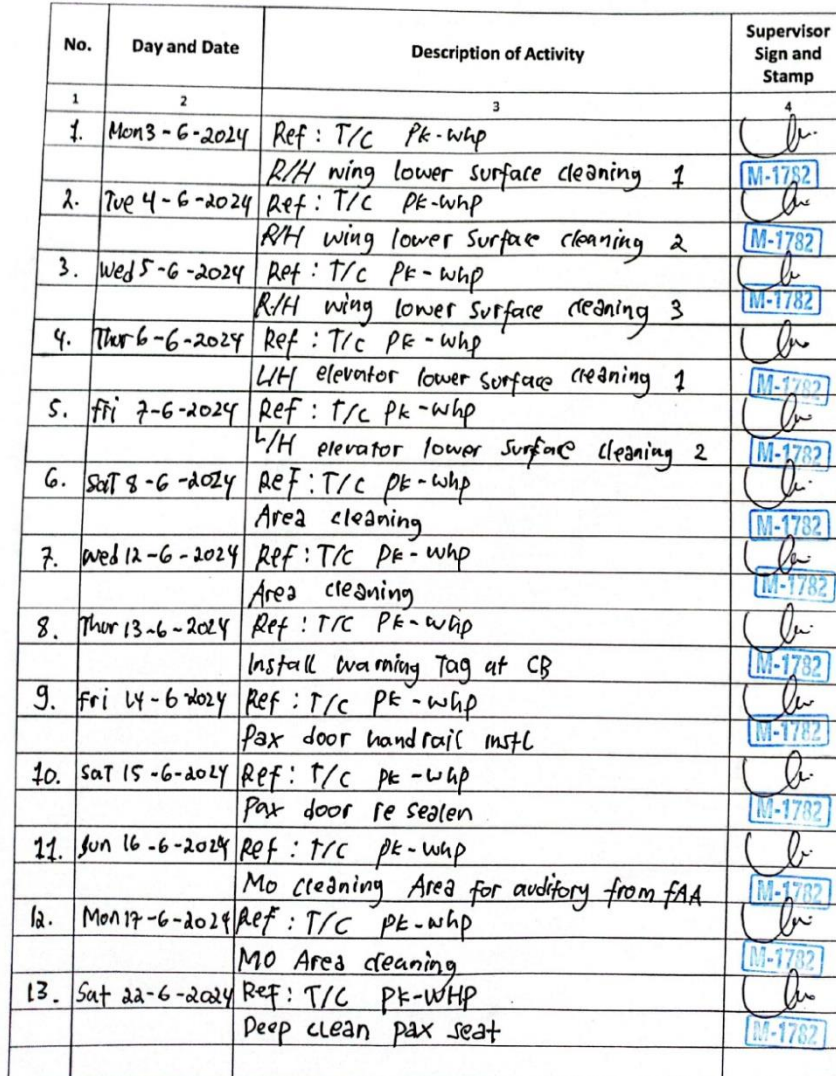 No. Day and Date Description of Activity Supervisor Sign and Stamp
1 2 3 4
1. Mon 3-6-2024 Ref : T/C PK-WHP
R/H wing lower surface cleaning 1 M-1782
2. Tue 4-6-2024 Ref : T/C PK-WHP
R/H wing lower surface cleaning 2 M-1782
3. Wed 5-6-2024 Ref : T/C PK-WHP
R/H wing lower surface cleaning 3 M-1782
4. Thur 6-6-2024 Ref : T/C PK-WHP
L/H elevator lower surface cleaning 1 M-1782
5. Fri 7-6-2024 Ref : T/C PK-WHP
L/H elevator lower surface cleaning 2 M-1782
6. SaT 8-6-2024 Ref : T/C PK-WHP
Area cleaning M-1782
7. Wed 12-6-2024 Ref : T/C PK-WHP
Area cleaning M-1782
8. Thur 13-6-2024 Ref : T/C PK-WHP
Install warning Tag at CB M-1782
9. Fri 14-6-2024 Ref : T/C PK-WHP
Pax door handrail instl M-1782
10. SaT 15-6-2024 Ref : T/C PK-WHP
Pax door re sealen M-1782
11. Sun 16-6-2024 Ref : T/C PK-WHP
Mo cleaning Area for auditory from FAA M-1782
12. Mon 17-6-2024 Ref : T/C PK-WHP
MO Area cleaning M-1782
13. Sat 22-6-2024 Ref : T/C PK-WHP
Deep clean pax seat M-1782